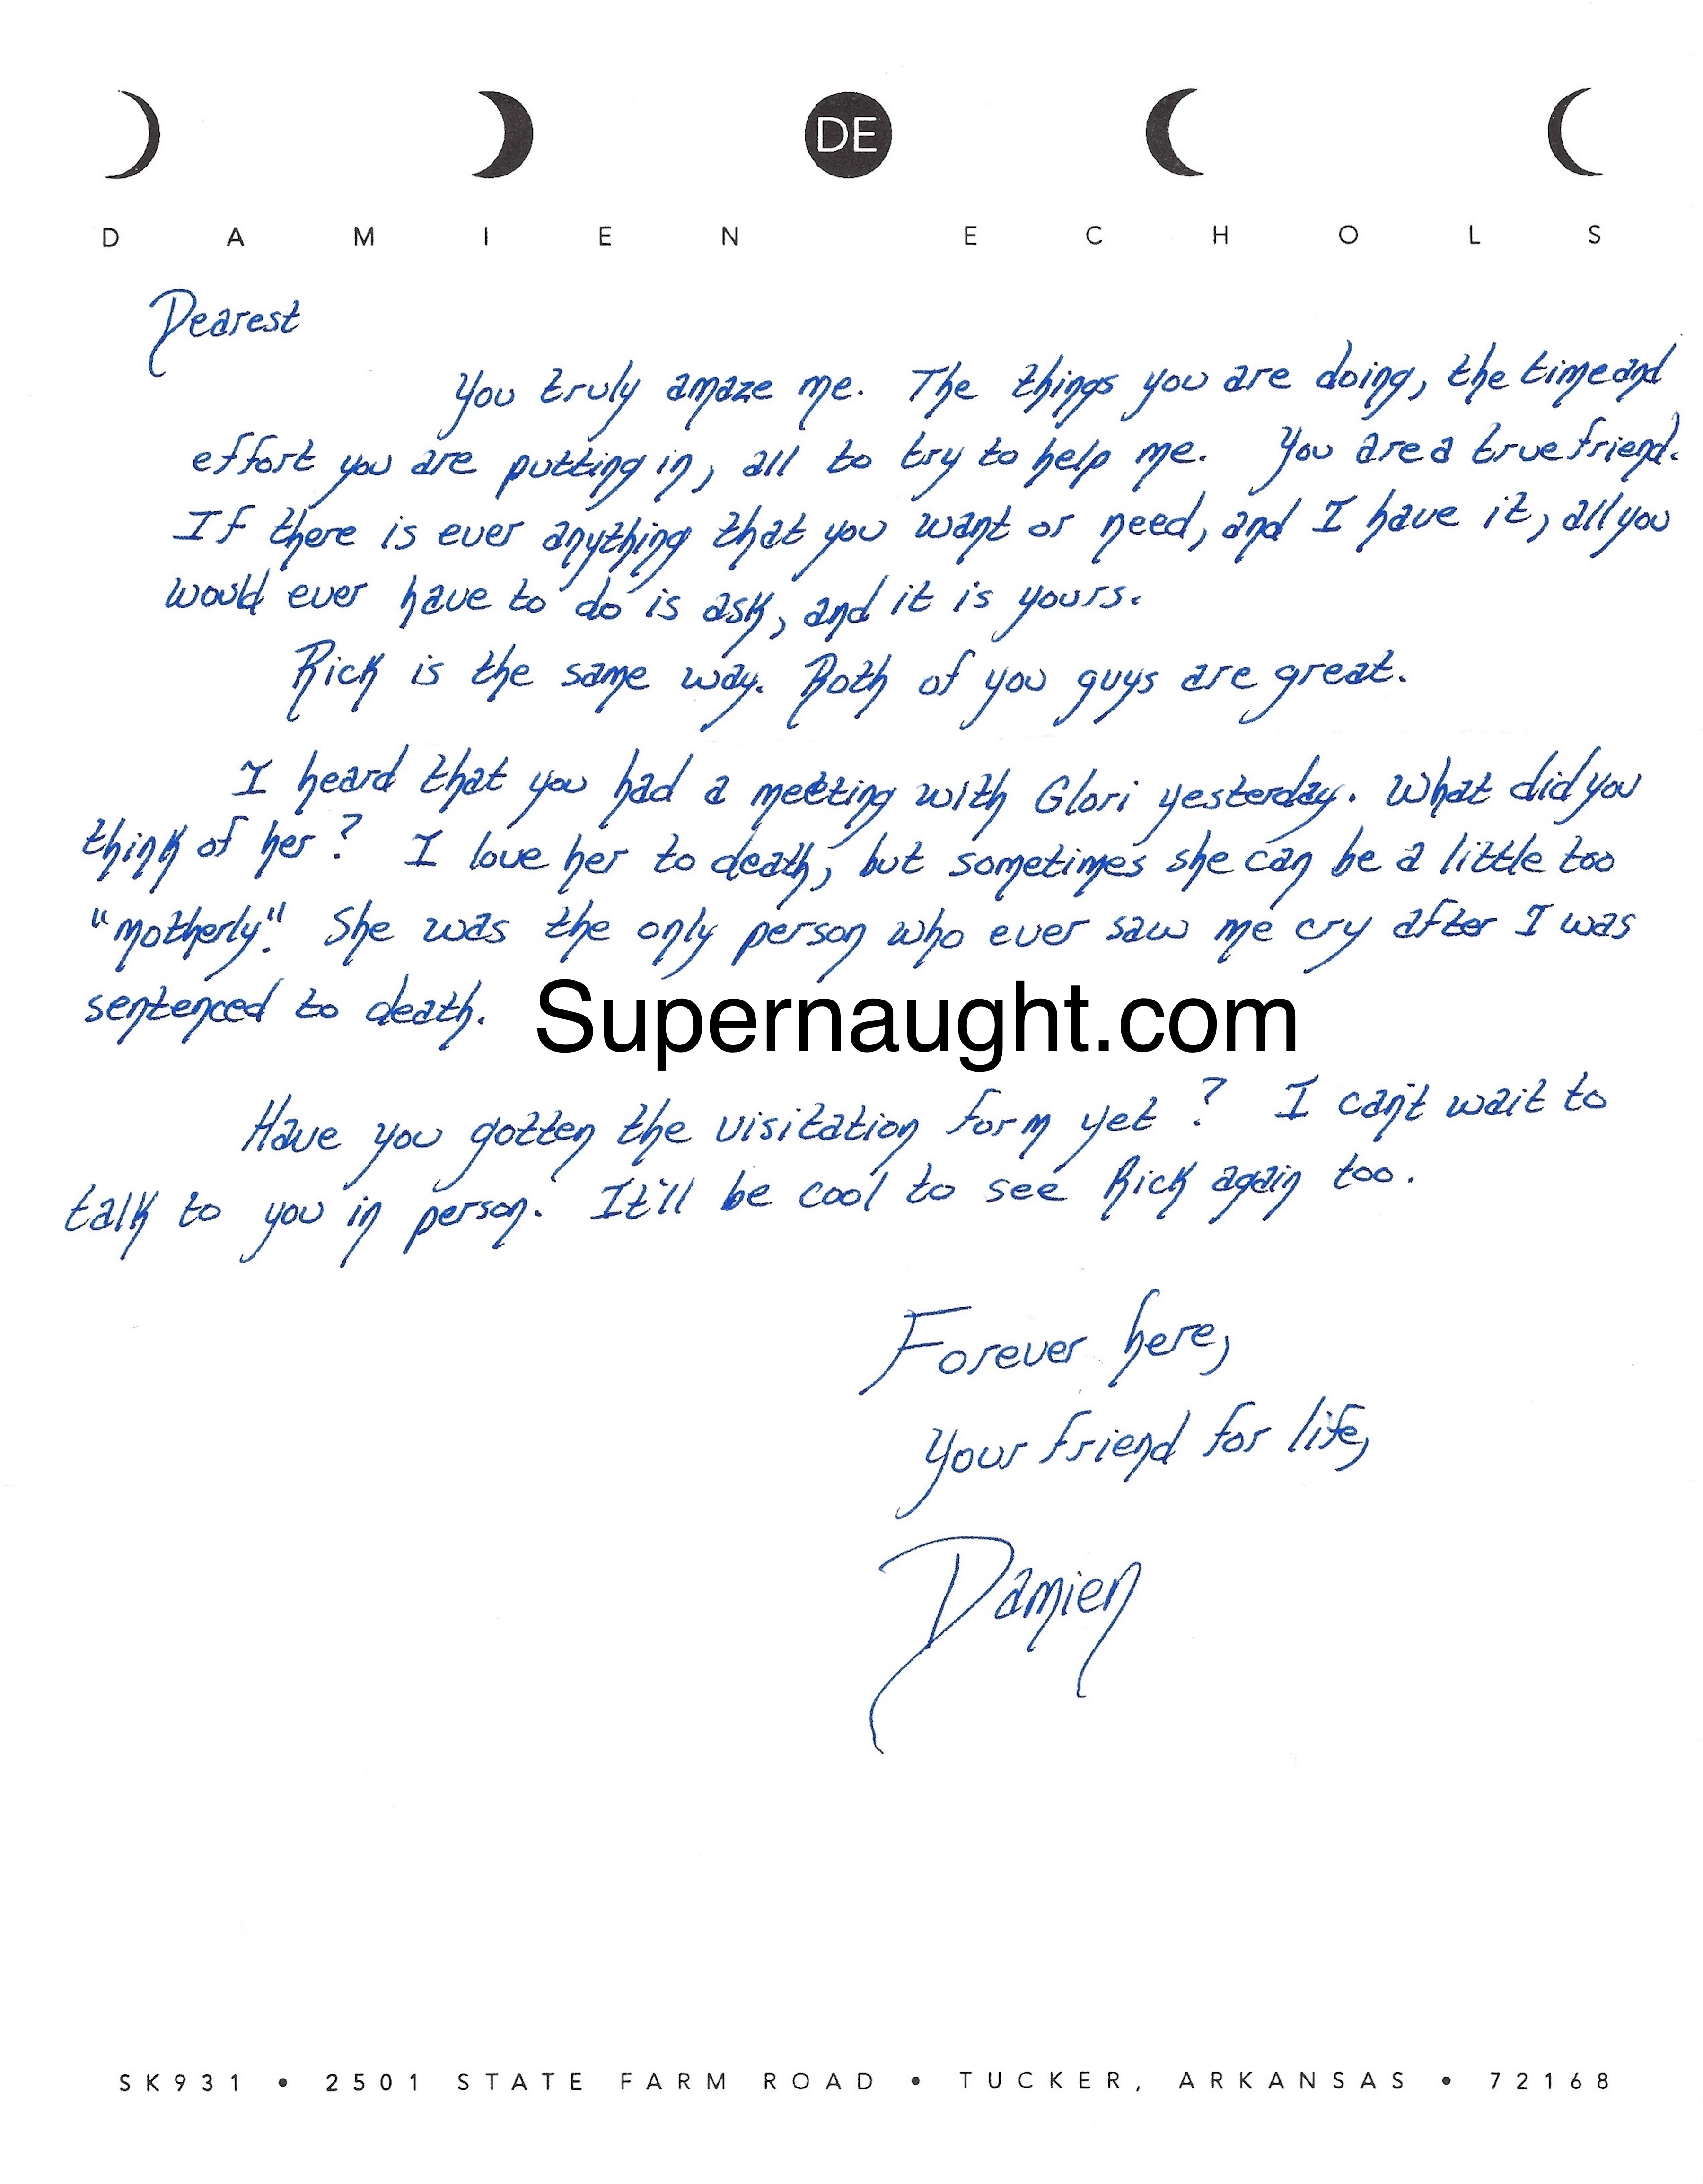 DE
DAMIEN ECHOLS
Dearest
You truly amaze me. The things you are doing, the time and
effort you are putting in, all to try to help me. You are a true friend.
If there is ever anything that you want or need, and I have it, all you
would ever have to do is ask, and it is yours.
Rick is the same way. Both of you guys are great.
I heard that you had a meeting with Glori yesterday. What did you
think of her? I love her to death, but sometimes she can be a little too
"motherly". She was the only person who ever saw me cry after I was
sentenced to death.
Supernaught.com
Have you gotten the visitation form yet? I can't wait to
talk to you in person. It'll be cool to see Rick again too.
Forever here,
Your friend for life,
Damien
SK931 • 2501 STATE FARM ROAD • TUCKER, ARKANSAS • 72168